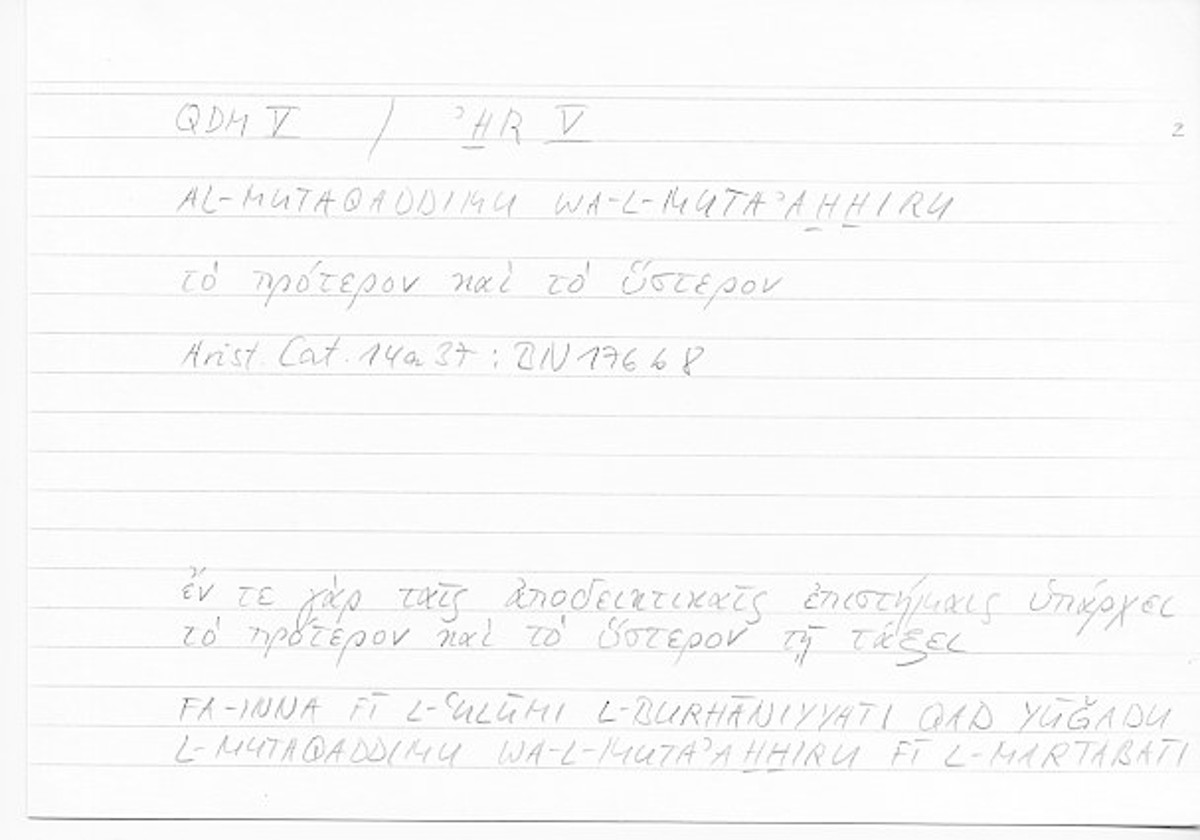 QDM V / ʾH̲R V
2
AL-MUTAQADDIMU WA-L-MUTAʾAH̲H̲IRU
τὸ πρότερον καὶ τὸ ὕστερον
Arist. Cat. 14a37 : BN 176b8
ἔν τε γὰρ ταῖς ἀποδεικτικαῖς ἐπιστήμαις ὑπάρχει
τὸ πρότερον καὶ τὸ ὕστερον τῇ τάξει
FA-INNA FĪ L-ʿULŪMI L-BURHĀNIYYATI QAD YŪǦADU
L-MUTAQADDIMU WA-L-MUTAʾAH̲H̲IRU FĪ L-MARTABATI